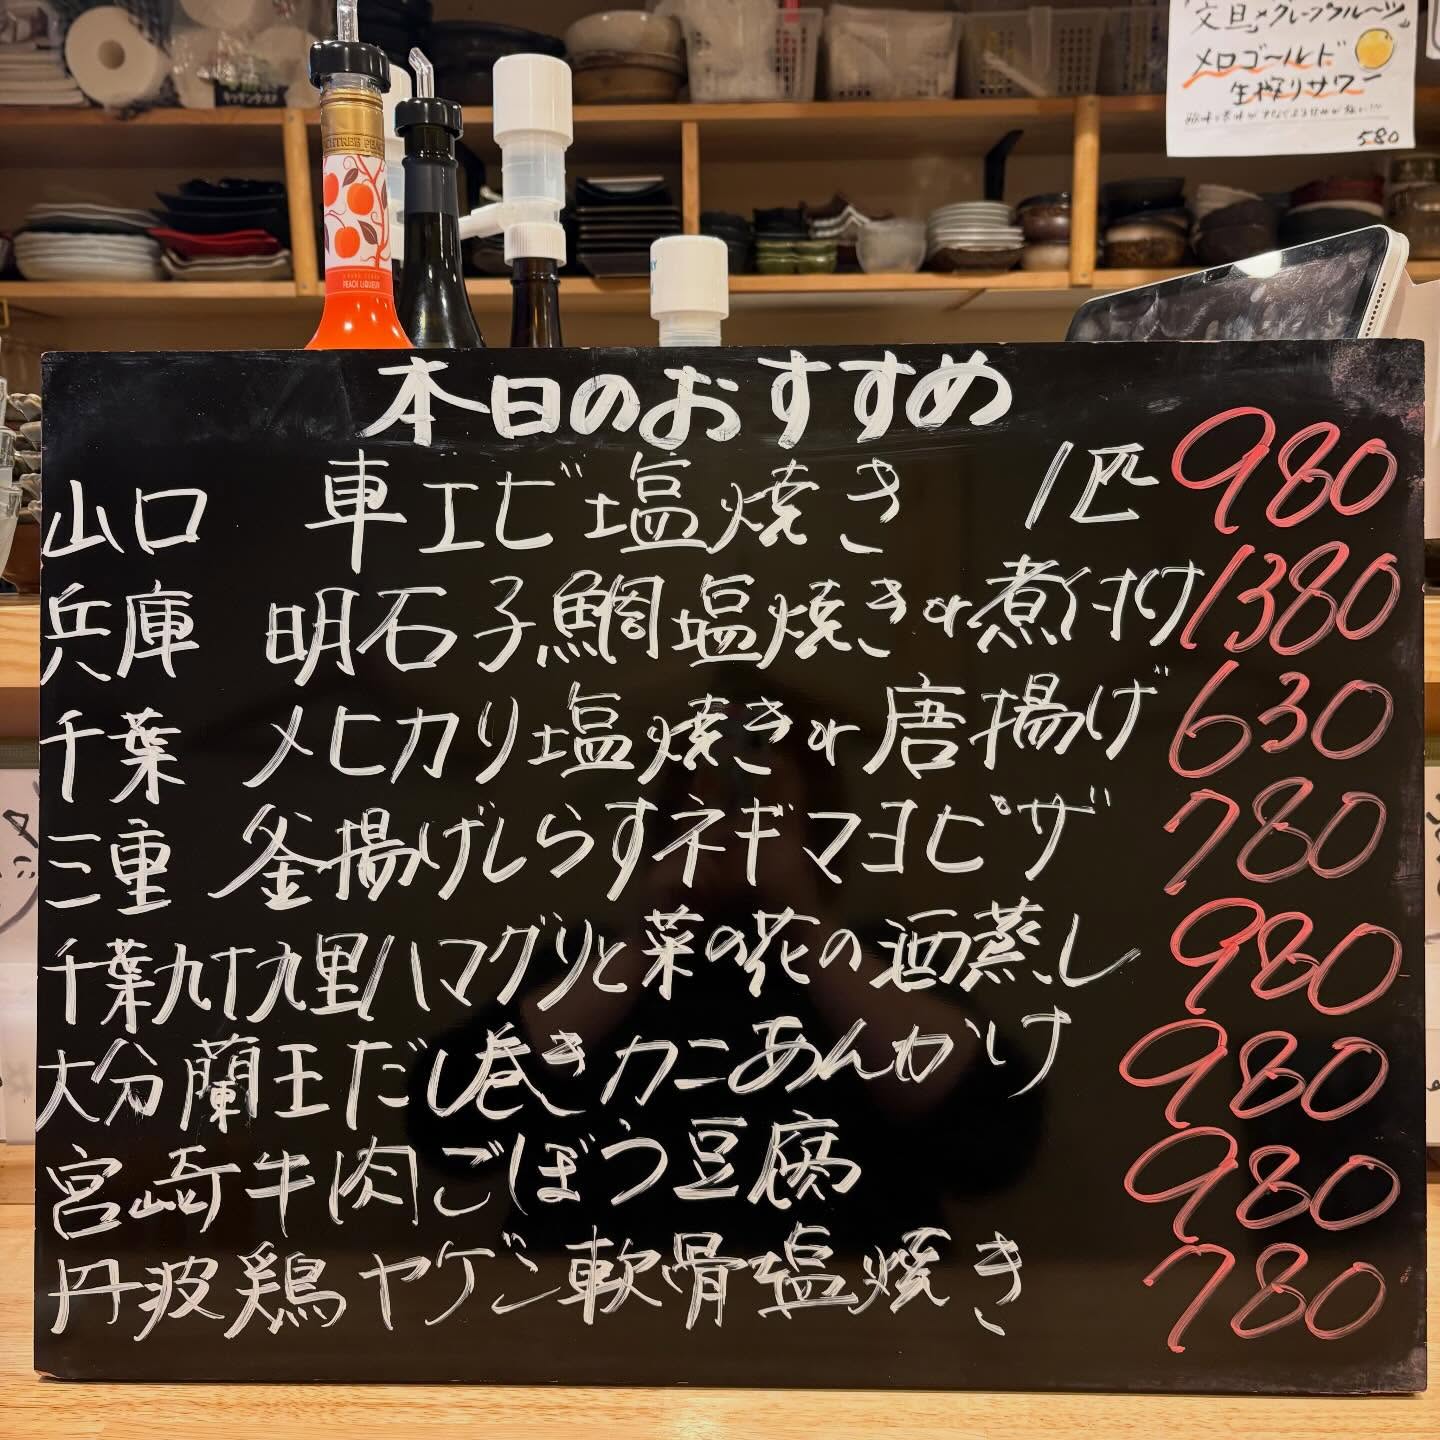 文旦×グレープフルーツ
メロゴールド
生搾りサワー
580
PEACH LIQUEUR
本日のおすすめ
山口 車エビ塩焼き 1匹 980
兵庫 明石子鯛塩焼きor煮付け 1380
千葉 メヒカリ塩焼きor唐揚げ 630
三重 釜揚げしらすネギマヨピザ 780
千葉九十九里ハマグリと菜の花の酒蒸し 980
大分蘭王だし巻きカニあんかけ 980
宮崎牛肉ごぼう豆腐 980
丹波鶏ヤゲン軟骨塩焼き 780